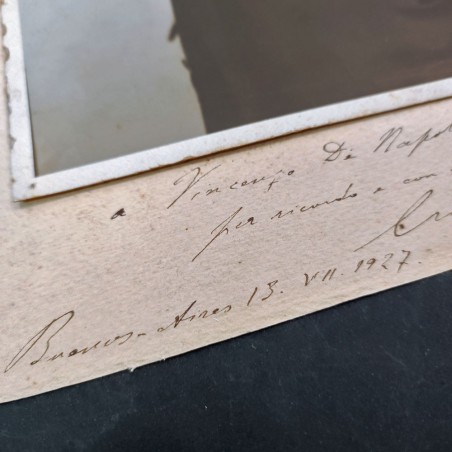 a Vincenzo De Napol
per ricordo e con
Buenos-Aires 13. VII. 1927.